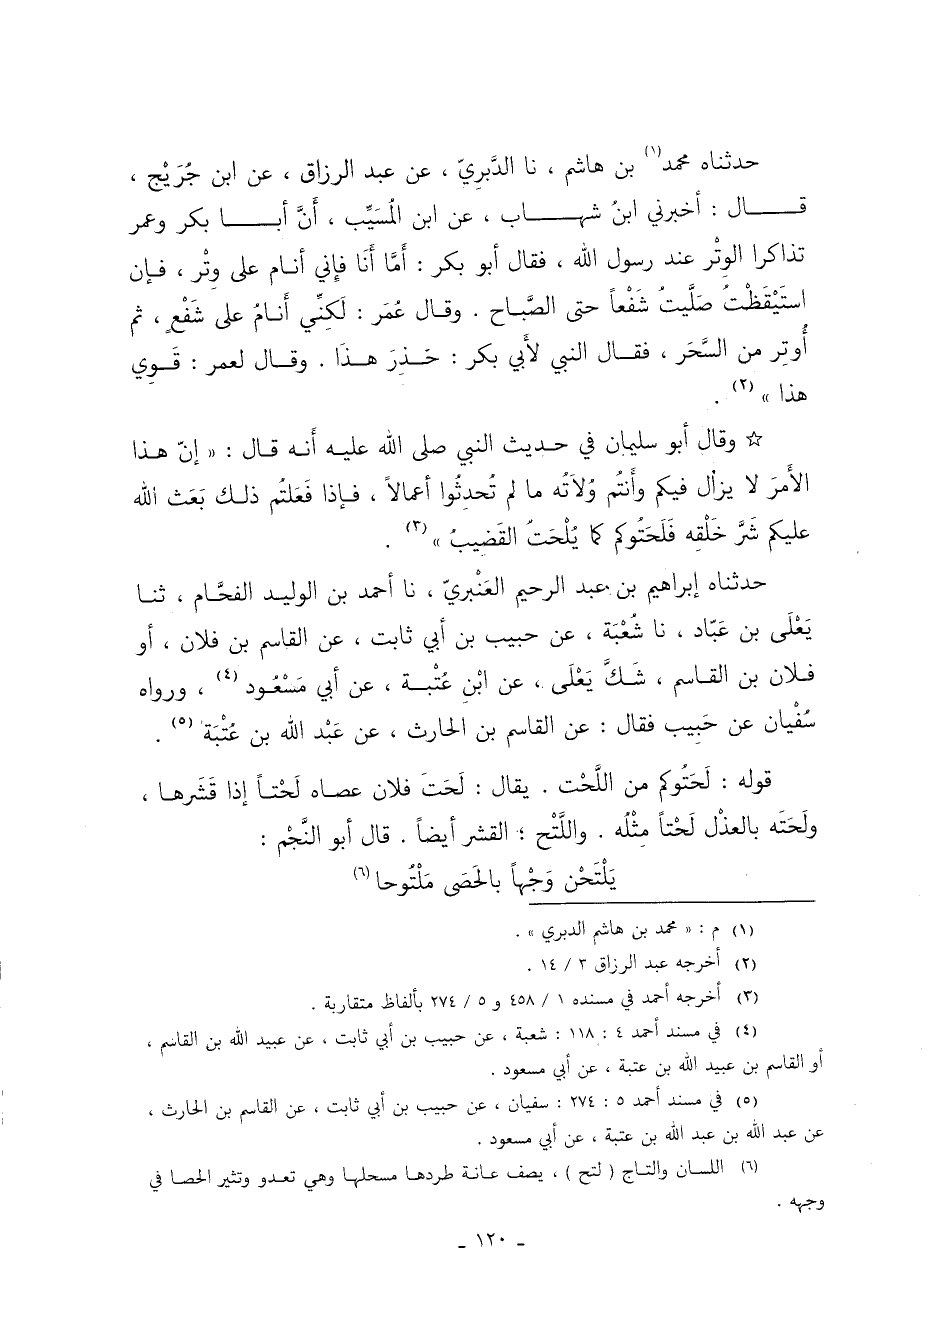 حدثناه محمد(١) بن هاشم ، نا الدَّبريّ ، عن عبد الرزاق ، عن ابن جُرَيْج ،
قـــــال : أخبرني ابنُ شهـــــاب ، عن ابن المُسَيِّب ، أَنَّ أبـــــا بكر وعمر
تذاكرا الوتْر عند رسول الله ، فقال أبو بكر : أَمَّا أَنَا فإني أنـام على وتْر ، فـإن
استَيْقَظْتُ صَلَّيتُ شَفْعاً حتى الصَّباح . وقـال عُمَر : لَكنِّي أَنامُ على شَفْعٍ ، ثم
أُوتِر من السَّحَر ، فقـال النبي لأَبي بكر : حَـذِرَ هـذَا . وقـال لعمر : قَـوِي
هذا » (٢) .
☆ وقال أبو سليمان في حـديث النبي صلى الله عليـه أَنـه قـال : « إنّ هـذا
الأَمرَ لا يزال فيكم وأَنتُم وُلاَتُه ما لم تُحدثُوا أعمالاً ، فـإذا فَعَلتُم ذلـك بَعَث الله
عليكم شَرَّ خَلْقِه فَلَحَتُوكم كما يُلْحَتُ القَضِيبُ » (٣) .
حدثناه إبراهيم بن عبد الرحيم العَنْبريّ ، نا أحمد بن الوليـد الفحَّـام ، ثنـا
يَعْلَى بن عَبَّاد ، نا شُعْبَة ، عن حبيب بن أبي ثابت ، عن القاسم بن فلان ، أو
فـلان بن القـاسم ، شَـكَّ يَعْلَى ، عن ابْنِ عُتْبـة ، عن أبي مَسْعُـود (٤) ، ورواه
سُفْيان عن حَبِيب فقال : عن القاسم بن الحارث ، عن عَبْد الله بن عُتْبَة (٥) .
قوله : لَحَتُوكم من اللَّحْت . يقال : لَحَتَ فلان عصاه لَحْتـاً إذا قَشَرهـا ،
ولَحَتَه بالعذْل لَحْتاً مثْلُه . واللَّتْح ؛ القشر أيضاً . قال أبو النَّجْم :
يَلْتَحْن وَجْهاً بالحَصَى مَلْتُوحا (٦)
(١) م : « محمد بن هاشم الدبري » .
(٢) أخرجه عبد الرزاق ٣ / ١٤ .
(٣) أخرجه أحمد في مسنده ١ / ٤٥٨ و ٥ / ٢٧٤ بألفاظ متقاربة .
(٤) في مسند أحمد ٤ : ١١٨ : شعبة ، عن حبيب بن أبي ثابت ، عن عبيد الله بن القاسم ،
أو القاسم بن عبيد الله بن عتبة ، عن أبي مسعود .
(٥) في مسند أحمد ٥ : ٢٧٤ : سفيان ، عن حبيب بن أبي ثابت ، عن القاسم بن الحارث ،
عن عبد الله بن عبد الله بن عتبة ، عن أبي مسعود .
(٦) اللسان والتاج ( لتح ) ، يصف عانة طردها مسحلها وهي تعدو وتثير الحصا في
وجهه .
ـ ١٢٠ ـ